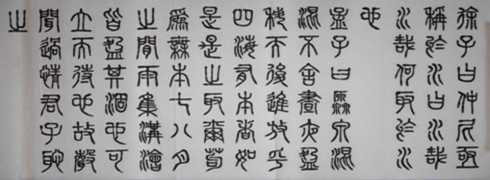 徐子曰仲尼亟
稱於水曰水哉
水哉何取於水
也
孟子曰原泉混
混不舍晝夜盈
科而後進放乎
四海有本者如
是是之取爾苟
為無本七八月
之閒雨集溝澮
皆盈其涸也可
立而待也故聲
聞過情君子恥
之